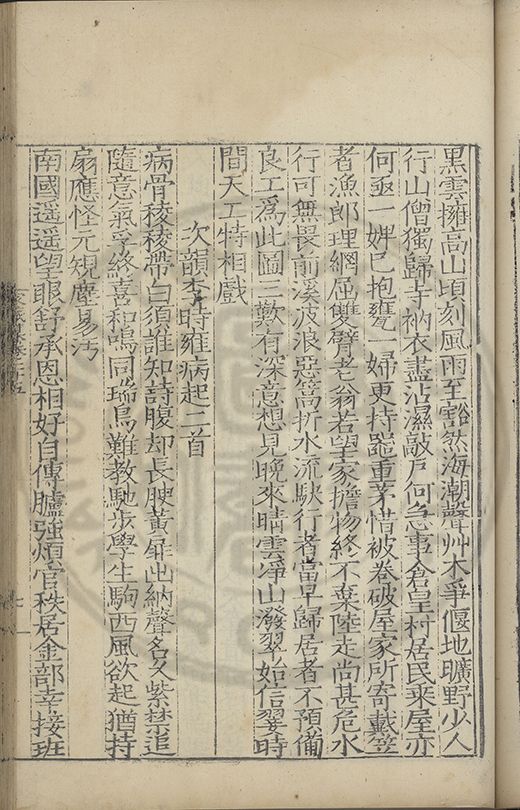 黑雲擁高山頃刻風雨至豁然海潮聲艸木爭偃地曠野少人
行山僧獨歸寺衲衣盡沾濕敲戶何急事倉皇村居民来屋亦
何亟一婢已抱甕一婦更持 重茅惜被卷破屋家所寄戴笠
者漁郎理網屈雙臂老翁若望家擔物終不棄陸走尚甚危水
行可無畏前溪波浪惡篙折水流駛行者當早歸居者不預備
良工爲此圖三歎有深意想見晚來晴雲凈山潑翠始信翣時
間天工特相戲
次韻李時雍病起二首
病骨稜稜帶白須誰知詩腹却長腴黃扉出納聲名久紫禁追
隨意氣孚終喜和鳴同瑞鳥難教馳步學生駒西風欲起猶持
扇應怪元規塵易污
南國遥遥望眼舒承恩相好自傳臚強煩官秩居金部幸接班